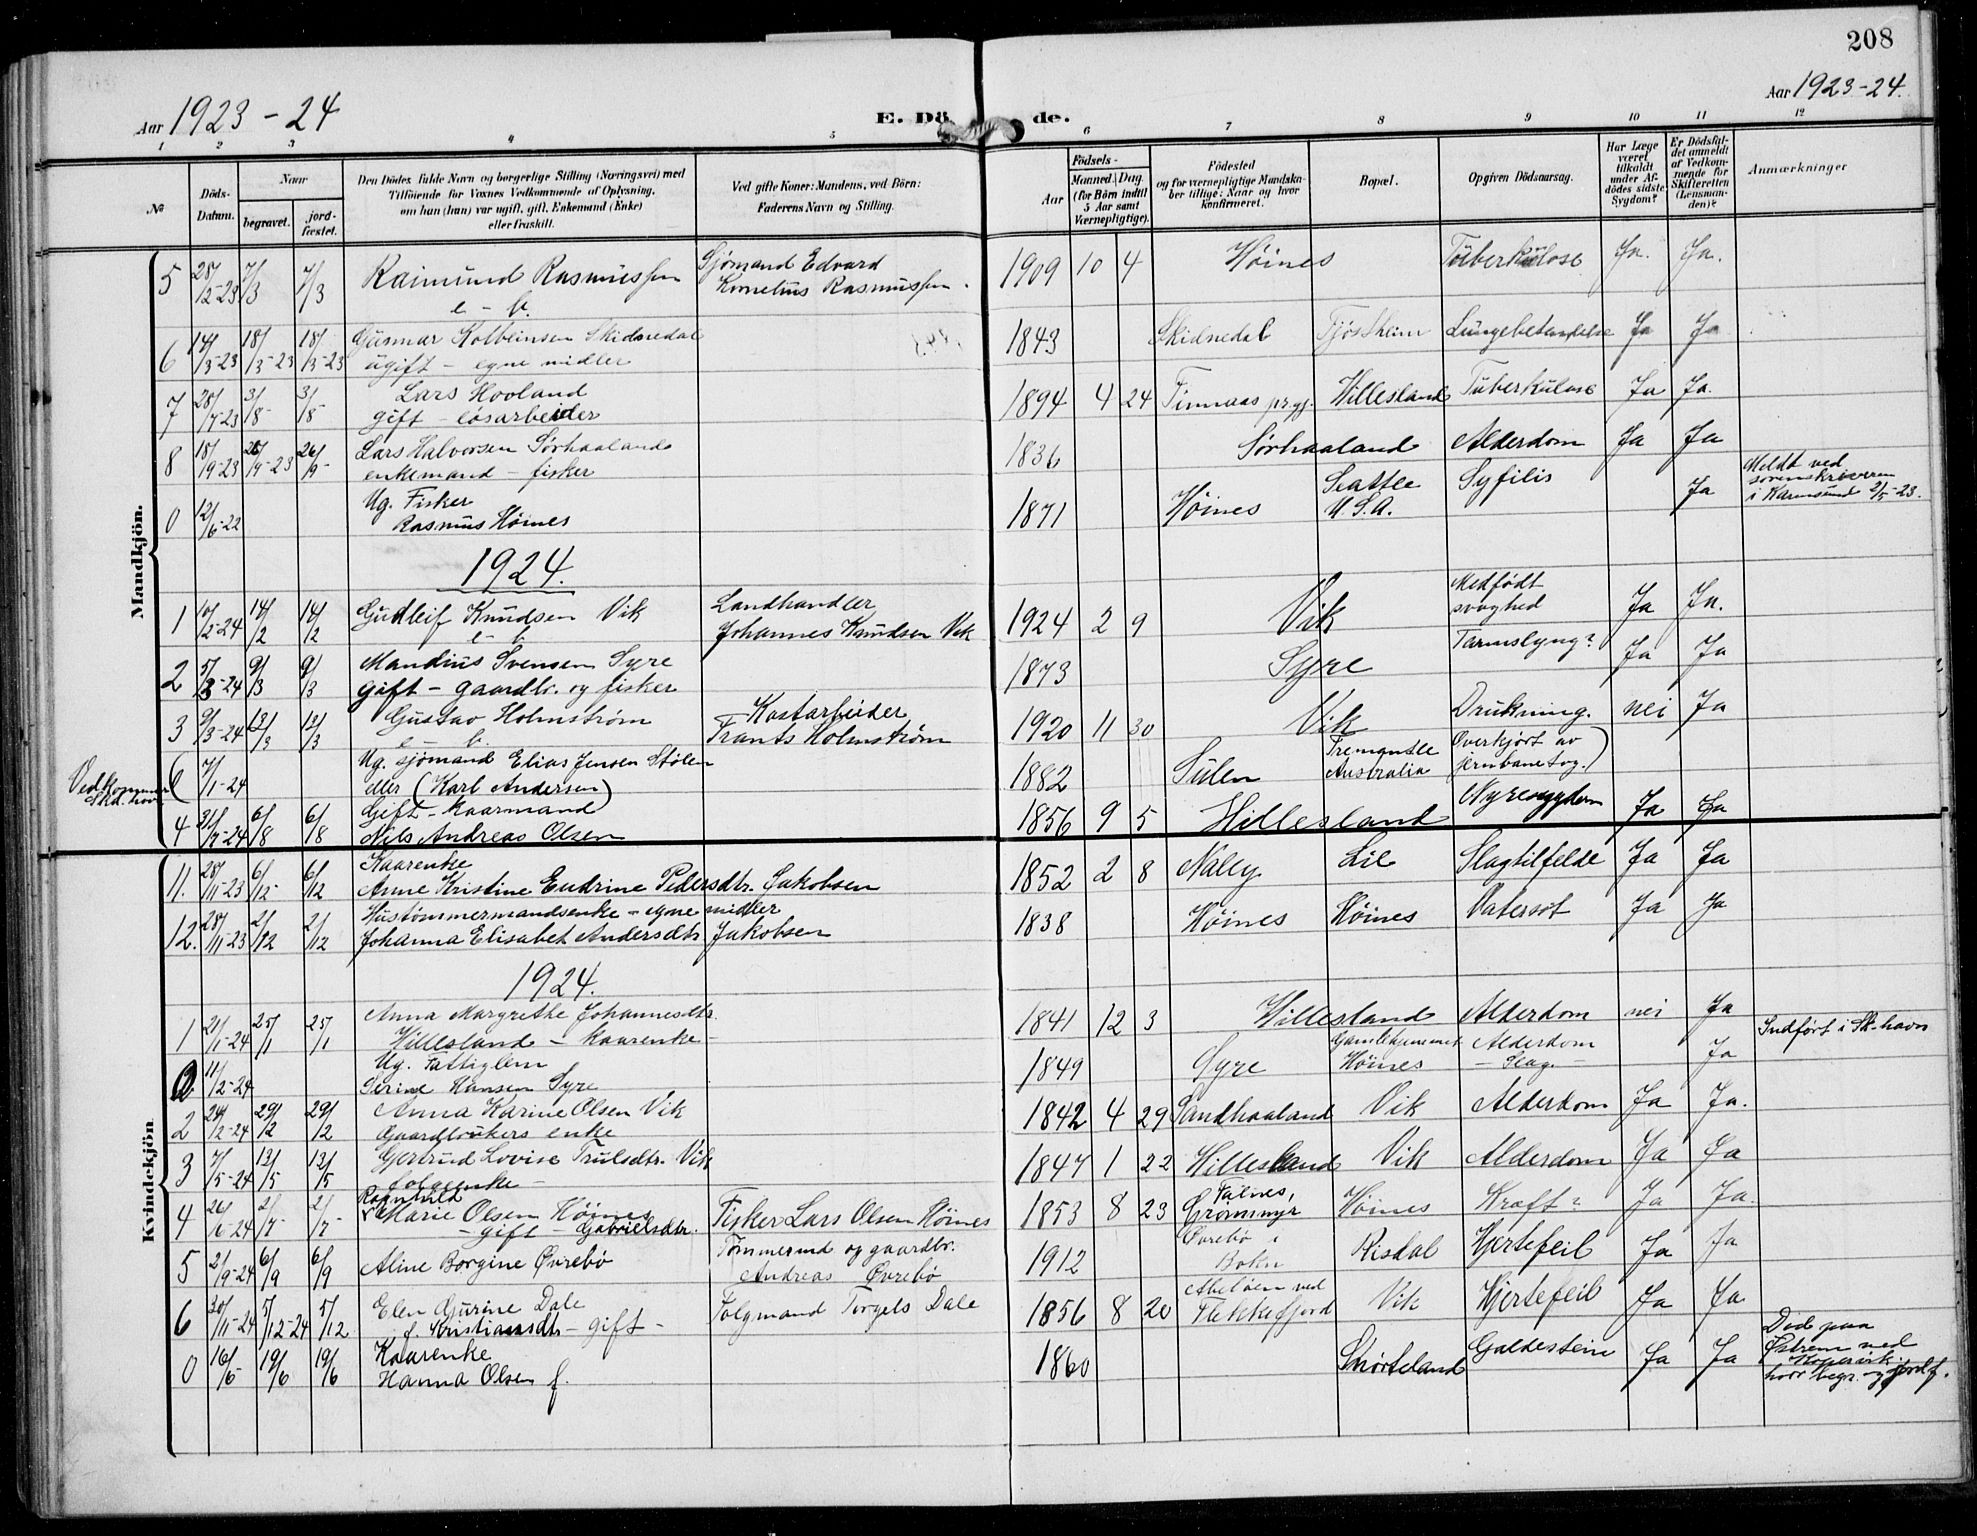 208
Aar 1923-24
E. Dö de.
Aar 1923-24.
1 2 3 4 5 6 7 8 9 10 11 12
No
Döds-Datum.
Naar
begravet.
jord-fæstet.
Den Dödes fulde Navn og borgerlige Stilling (Næringsvei) med
Tilföiende for Voxnes Vedkommende af Oplysning,
om han (hun) var ugift, gift, Enkemand (Enke)
eller fraskilt.
Ved gifte Koner: Mandens, ved Börn:
Faderens Navn og Stilling.
Födsels-
Aar
Maaned. Dag.
(for Börn indtil
5 Aar samt
Værnepligtige).
Födested
og for værnepligtige Mandska-
ber tillige: Naar og hvor
konfirmeret.
Bopæl.
Opgiven Dödsaarsag.
Har Læge
været
tilkaldt
under Af-
dödes sidste
Sygdom?
Er Dödsfal-
det anmeldt
af Vedkom-
mende for
Skifteretten
(Lensman-
den)?
Anmærkninger
Mandkjön.
5 28/12-23 7/3 7/3 Raimund Rasmussen Sjömand Edvard 1909 10 4 Höines Tuberkulose Ja. Ja.
e - b. Kornelius Rasmussen.
6 14/3-23 18/3-23 18/3-23 Gunnar Kolbeinsen Skidnedal 1843 Skidnedal Tjösheim Lungebetændelse Ja Ja
ugift - egne midler
7 28/7-23 3/8- 3/8- Lars Hovland 1894 4 24 Finnaas prgj. Hillesland Tuberkulose Ja Ja.
gift - lösarbeider
8 18/9-23 26/9-23 26/9- Lars Halvorsen Sörhaaland 1836 Sörhaaland Alderdom Ja Ja
enkemand - fisker
0 12/6-22 Ug. Fisker 1871 Höines Seattle Syfilis Ja Meldt ved
Rasmus Höines U.S.A. sorenskriveren
i Karmsund 2/5-23.
1924.
1 10/2-24 14/2 14/2 Gudleif Knudsen Vik Landhandler 1924 2 9 Vik Medfödt svaghed Ja Ja.
e - b Johannes Knudsen Vik
2 5/3-24 9/3 9/3 Mandius Svensen Syre 1873 Syre Tarmslyng? Ja Ja
gift - gaardbr. og fisker
3 9/3-24 13/3 13/3 Gustav Holmström Kostarbeider 1920 11 30 Vik Drukning. nei Ja
e - b. Frants Holmström
Vedkommer Skd.havn
( 7/1-24 Ug. sjömand Elias Jensen Stölen 1882 Sulen Fremantle Overkjört av
eller (Karl Andersen) Australia jernbanetog.)
4 31/7-24 6/8 6/8 Gift - kaarmand 1856 9 5 Hillesland Nyresygdom Ja Ja
Nils Andreas Olsen
Kvindekjön.
11. 28/11-23 6/12- 6/12 Kaarenke 1852 2 8 Nally Lie Slagtilfelde Ja Ja
Anne Kristine Endrine Pedersdtr. Jakobsen
12. 28/11-23 2/12 2/12 Hustömmermandsenke - egne midler 1838 Höines Höines Vatersot Ja Ja
Johanna Elisabet Andersdtr Jakobsen
1924.
1 21/1-24 25/1 25/1 Anna Margrethe Johannesdtr. 1841 12 3 Hillesland Alderdom nei Ja
Hillesland - kaarenke -
11/2-24 Ug. Fattiglem 1849 Syre Gamlehjemmet Höines Alderdom - Slag - Ja Indfört i Sk.havn
Serine Hansen Syre
2 24/2-24 29/2 29/2 Anna Karine Olsen Vik 1842 4 29 Sandhaaland Vik Alderdom Ja Ja.
Gaardbrukers enke
3 7/5-24 13/5 13/5 Gjertrud Lovise Trulsdtr. Vik 1847 1 22 Hillesland Vik Alderdom Ja Ja
4 26/6-24 2/7- 2/7- Ragnhild Marie Olsen Höines Fisker Lars Olsen Höines 1853 8 23 Falnes, Grönmyr Höines Kræft? Ja Ja.
- gift - Gabrielsdtr.
5 2/9-24 6/9 6/9 Aline Borgine Övrebö Tömmermd og gaardbr. 1912 Övrebö i Bokn Risdal Hjertefeil Ja Ja
Andreas Övrebö
6 30/11-24 5/12-24 5/12 Elen Gurine Dale Folgmand Torgels Dale 1856 8 20 Abelöen ved Flekkefjord Vik Hjertefeil Ja Ja
f. Kristiansdtr - gift -
0 16/6- 19/6 19/6 Kaarenke 1860 Snörteland Galdestein Ja Ja Död paa
Hanna Olsen f. Østrem ved
Kopervik.
hvor begr. og jordf.